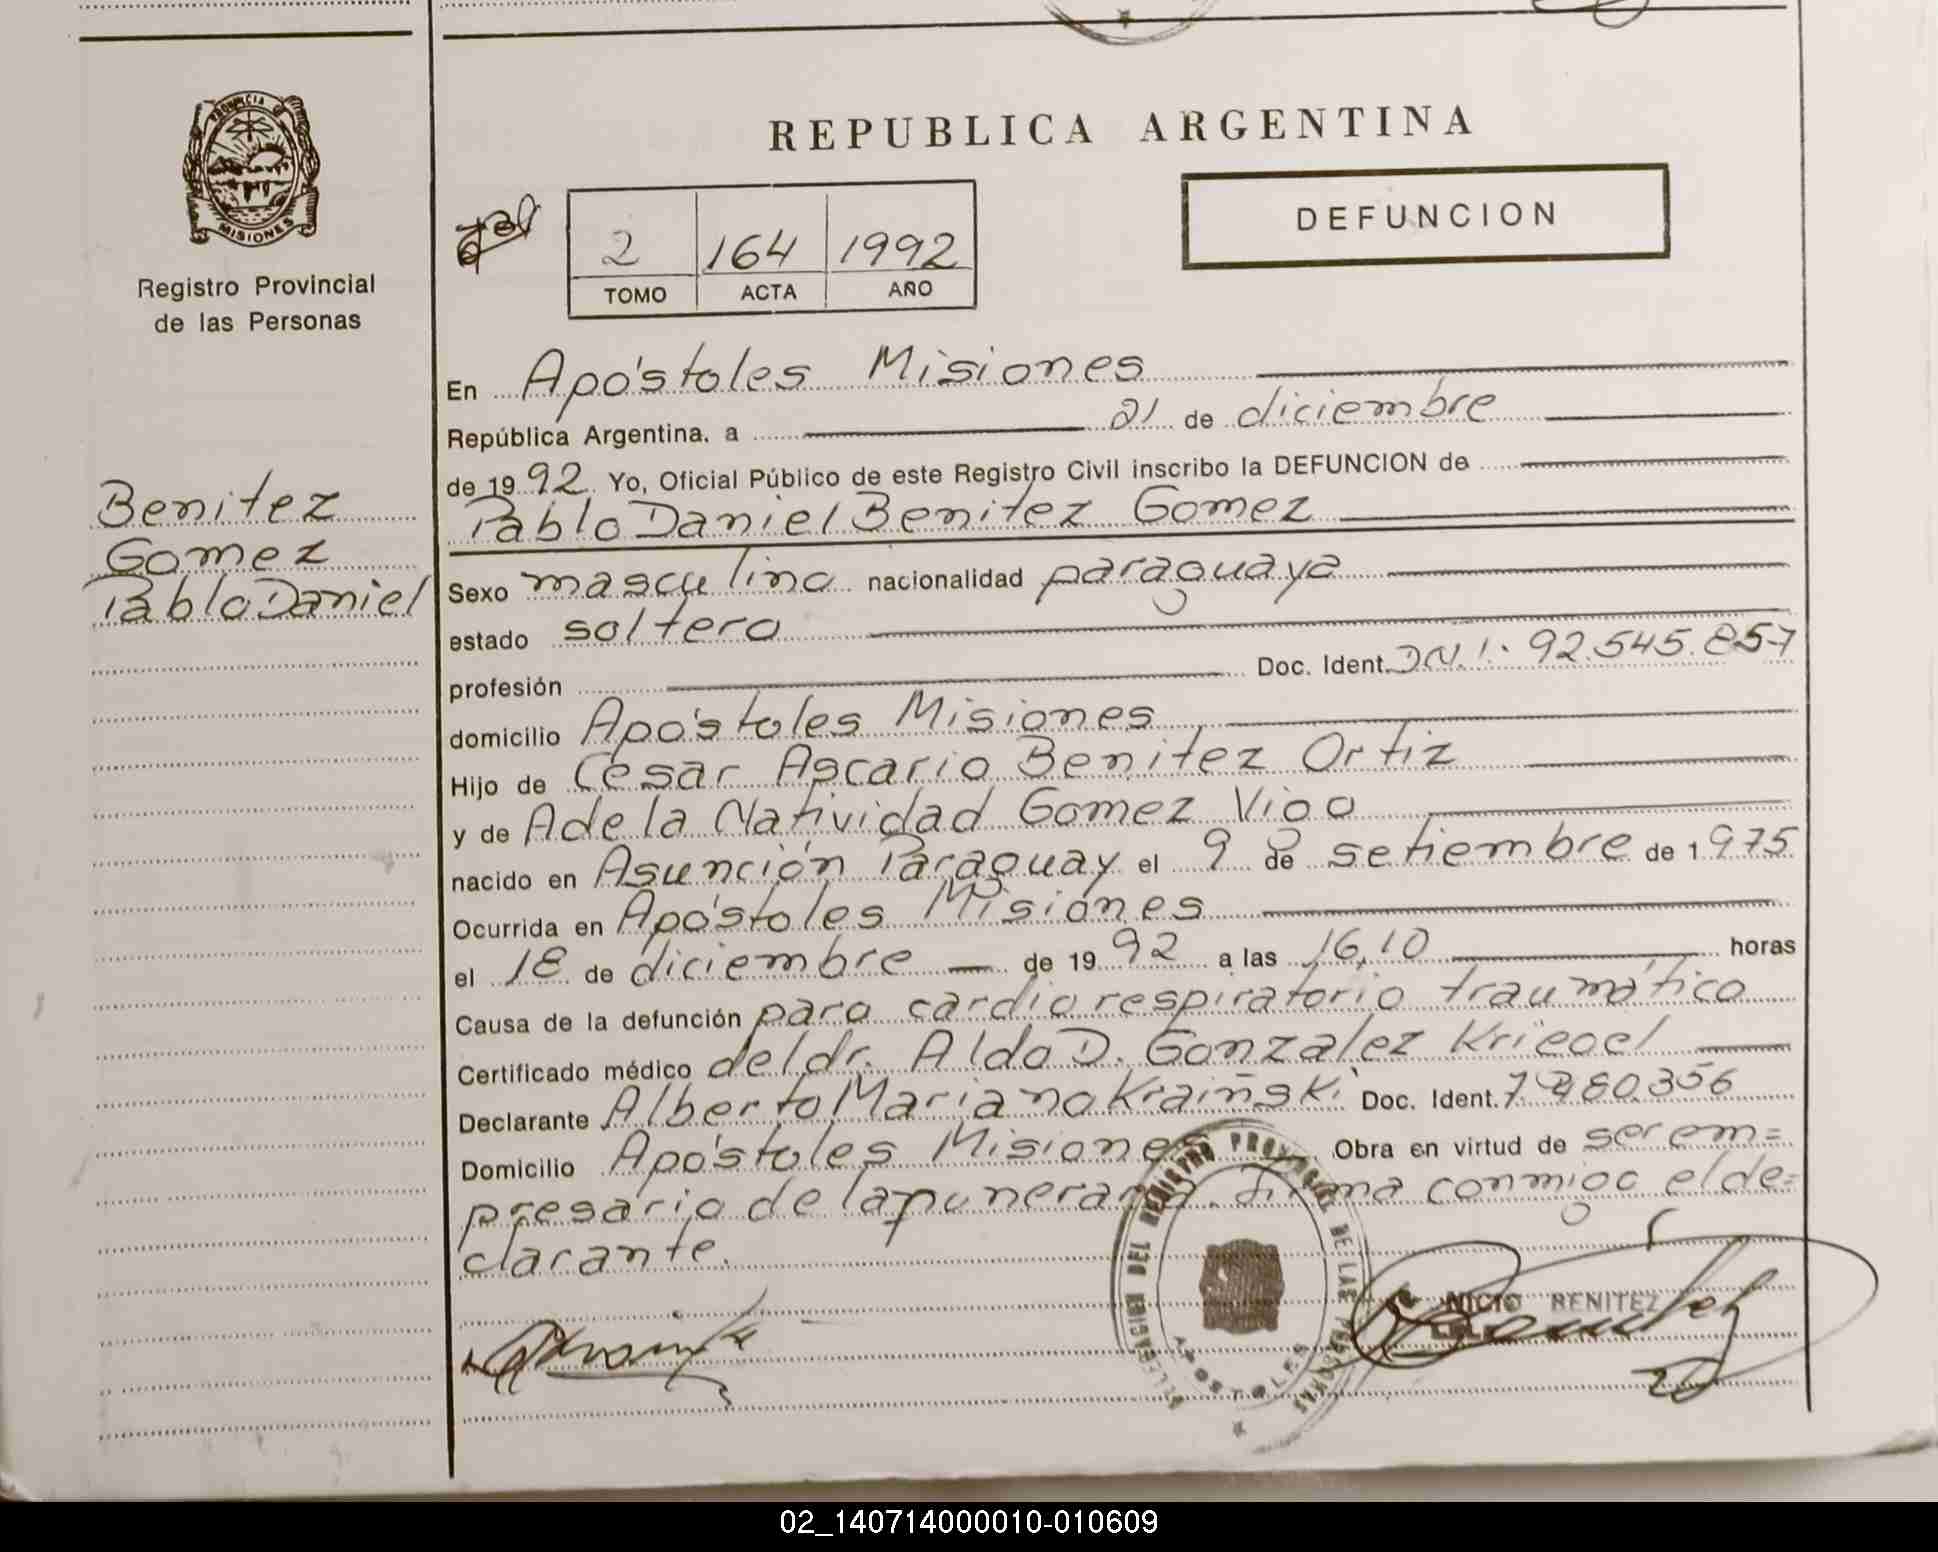 PROVINCIA DE
MISIONES
Registro Provincial
de las Personas
Benitez
Gomez
Pablo Daniel
REPUBLICA ARGENTINA
DEFUNCION
2 164 1992
TOMO ACTA AÑO
En Apóstoles Misiones
República Argentina. a 21 de diciembre
de 1992. Yo, Oficial Público de este Registro Civil inscribo la DEFUNCION de
Pablo Daniel Benitez Gomez
Sexo masculino nacionalidad paraguaya
estado soltero
profesión Doc. Ident. DN.I. 92.545.857
domicilio Apóstoles Misiones
Hijo de César Ascario Benitez Ortiz
y de Adela Natividad Gomez Vigo
nacido en Asunción Paraguay el 9 de setiembre de 1975
Ocurrida en Apóstoles Misiones
el 18 de diciembre de 1992 a las 16,10 horas
Causa de la defunción paro cardio respiratorio traumático
Certificado médico del dr. Aldo D. Gonzalez Kriegel
Declarante Alberto Mariano Kraiñski Doc. Ident. 7.480.356
Domicilio Apóstoles Misiones Obra en virtud de ser em=
presario de la funeraria. Firma conmigo el de=
clarante.
DELEGACION DEL REGISTRO PROVINCIAL DE LAS PERSONAS
APOSTOLES
NICIO BENITEZ
02_140714000010-010609